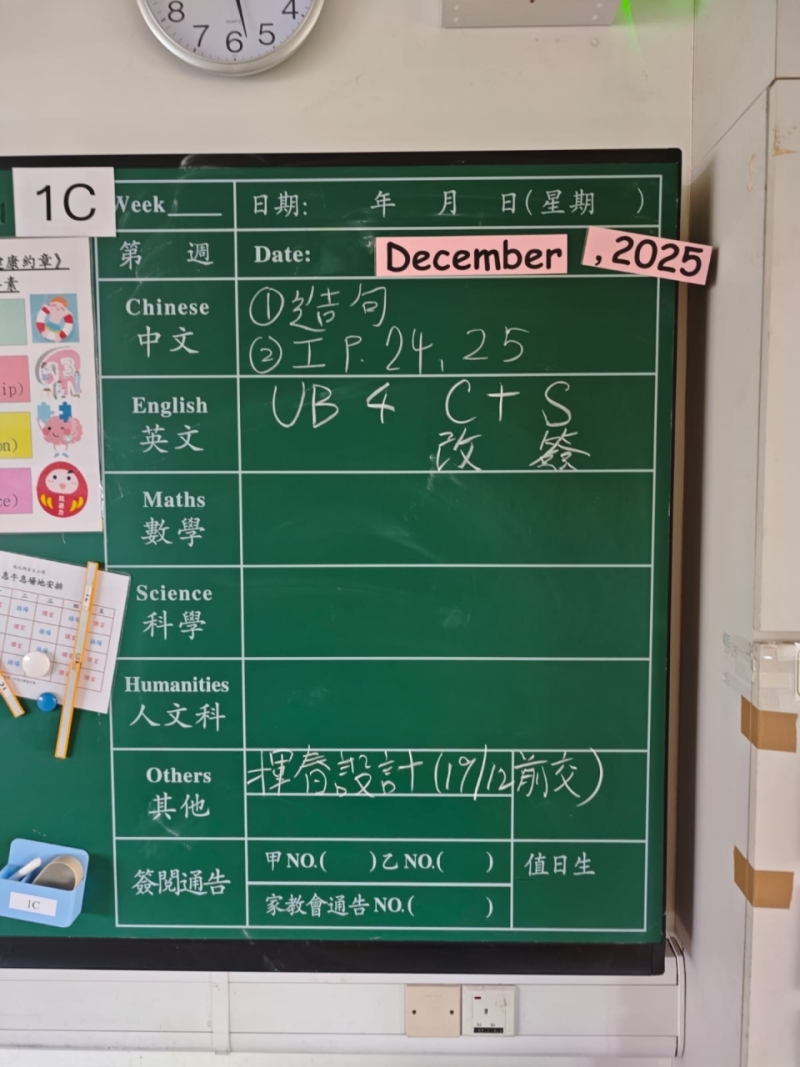 8 7 6 5 4
1C
Week
日期: 年 月 日(星期 )
第 週
Date:
December
, 2025
康約章》
素
ip)
on)
ce)
息午息場地安排
Chinese
中文
①造句
②工 P. 24, 25
English
英文
UB 4 C + S
改 簽
Maths
數學
Science
科學
Humanities
人文科
Others
其他
揮春設計(19/12前交)
簽閱通告
甲NO.( )乙NO.( )
家教會通告 NO.( )
值日生
1C